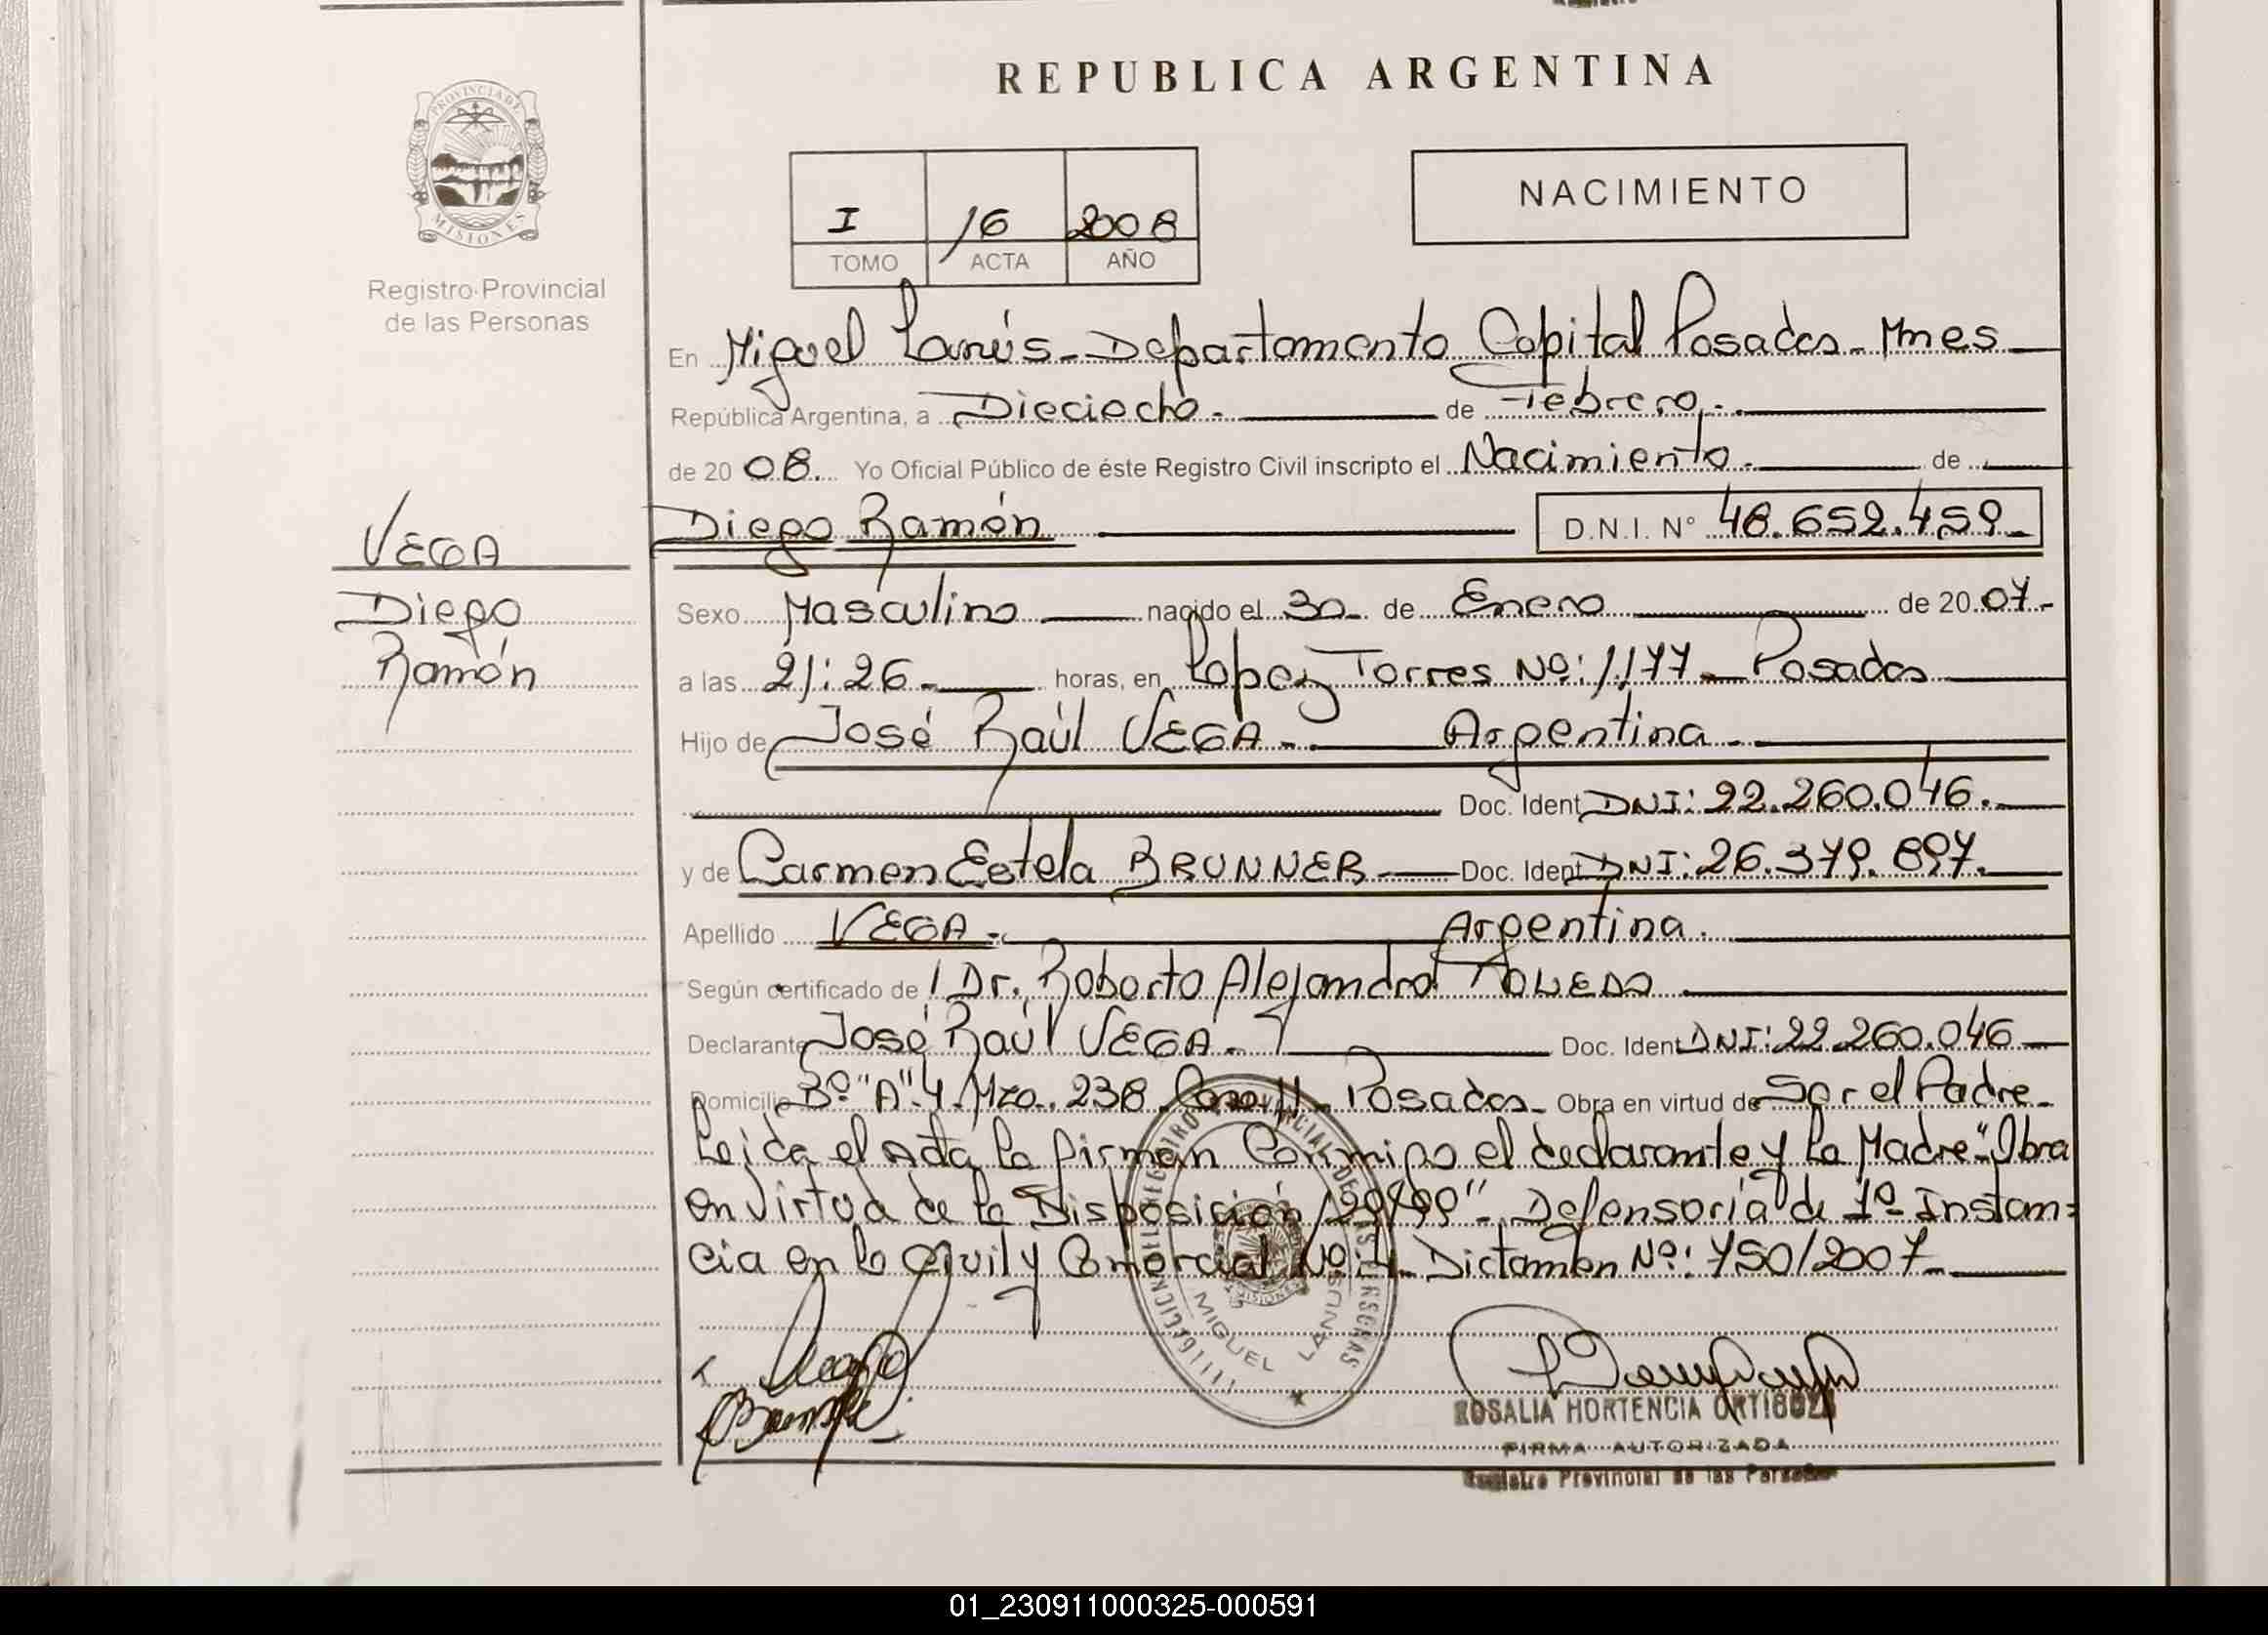 REPUBLICA ARGENTINA
PROVINCIA DE
MISIONES
Registro Provincial
de las Personas
I 16 2008
TOMO ACTA AÑO
NACIMIENTO
En Miguel Lanús - Departamento Capital Posadas - Mnes
República Argentina, a Dieciocho.- de Febrero.-
de 20 08. Yo Oficial Público de éste Registro Civil inscripto el Nacimiento.- de
VEGA
Diego
Ramón
Diego Ramón D.N.I. N° 48.652.459.-
Sexo Masculino nacido el 30- de Enero de 20 07-
a las 21:26.- horas, en Lopez Torres Nº: 1.177- Posadas
Hijo de José Raúl VEGA.- Argentina.-
Doc. Ident DNI: 22.260.046.-
y de Carmen Estela BRUNNER Doc. Ident DNI: 26.379.897.
Apellido VEGA.- Argentina.
Según certificado de Dr. Roberto Alejandro TOLEDO
Declarante José Raúl VEGA.- Doc. Ident DNI: 22.260.046
Domicilio Bº "A" 4 Mza. 238 Casa 11- Posadas- Obra en virtud de Ser el Padre-
Leida el Acta la firman Conmigo el declarante y la Madre- "Obra
en virtud de la Disposición Defensoría de 1º Instan=
cia en lo Civil y Comercial Nº: 4- Dictamen Nº: 750/2007-
MIGUEL LANUS
ROSALIA HORTENCIA ORTIGOZA
FIRMA AUTORIZADA
Registro Provincial de las Personas
01_230911000325-000591